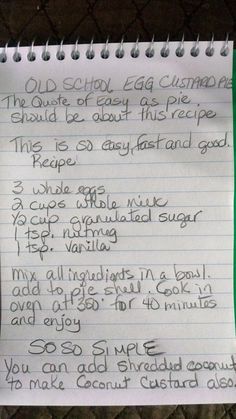 OLD SCHOOL EGG CUSTARD PIE
The Quote of Easy as pie.
should be about this recipe
This is so easy, fast and good.
Recipe
3 whole eggs
2 cups whole milk
1/2 cup granulated sugar
1 tsp. nutmeg
1 tsp. vanilla
mix all ingredients in a bowl.
add to pie shell. Cook in
oven at 350° for 40 minutes
and enjoy
SO SO SIMPLE
You can add shredded coconut
to make Coconut Custard also.